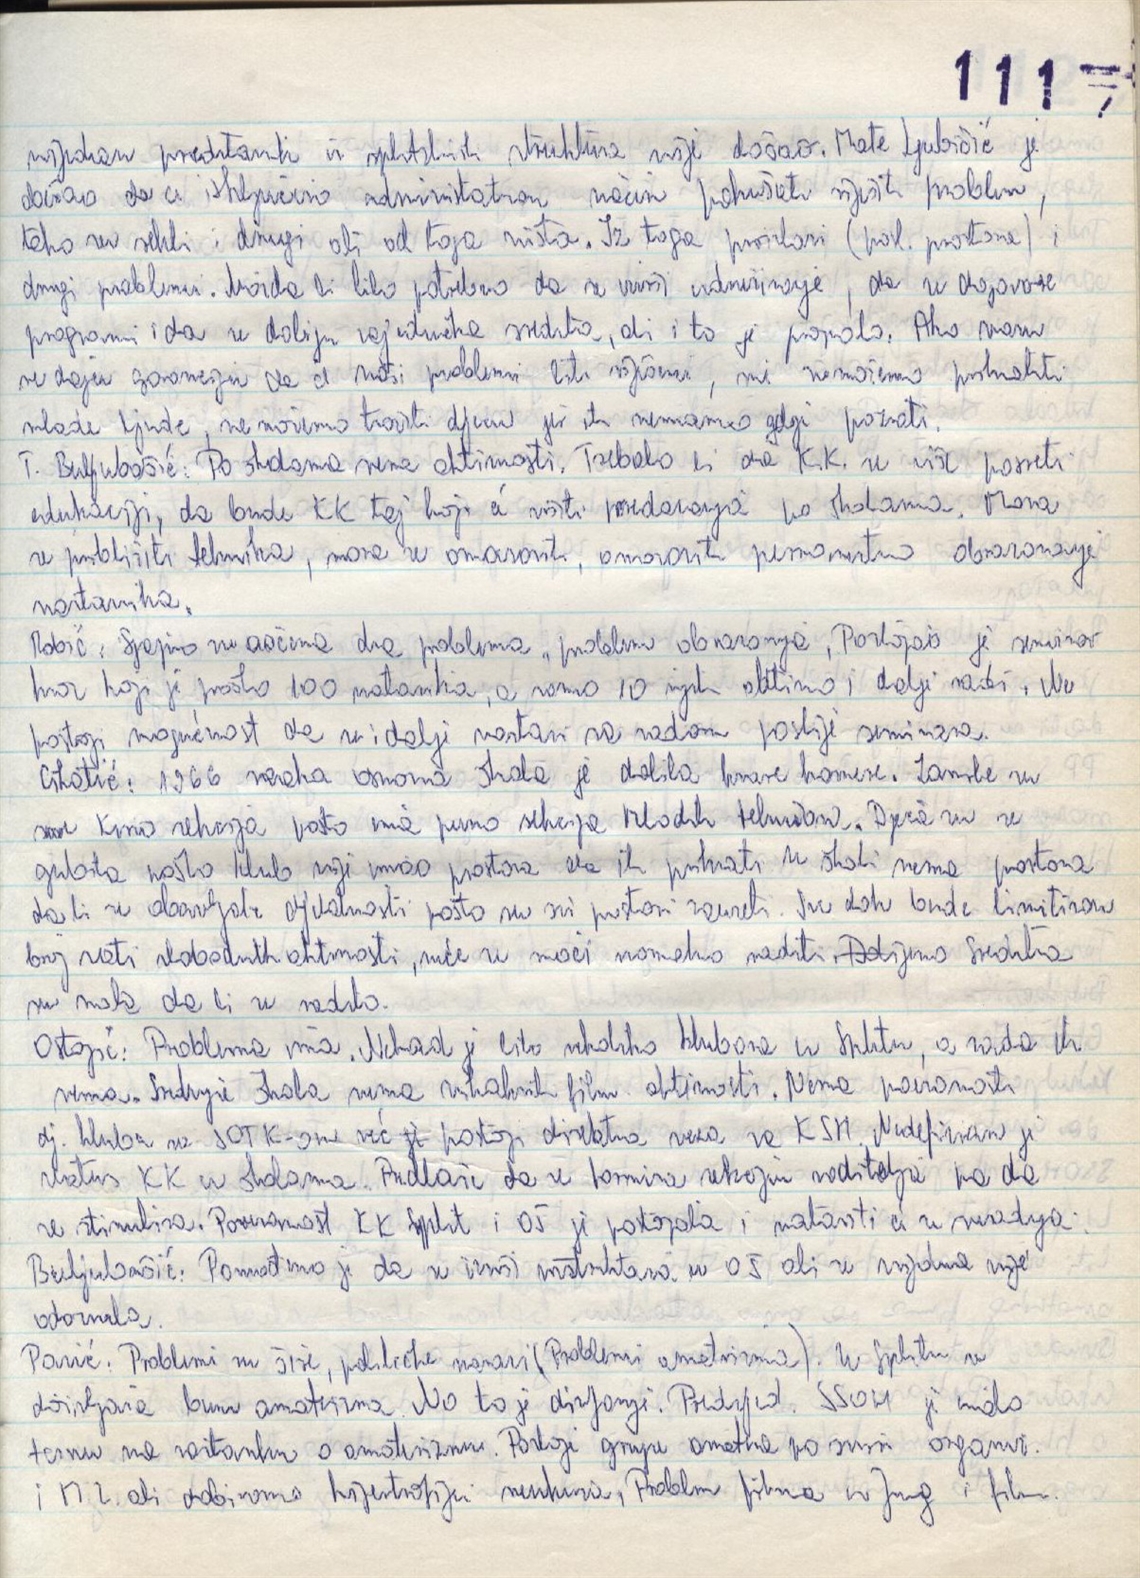 111
nijedan predstavnik iz splitskih struktura nije došao. Mate Ljubičić je
došao da će isključivo administativan način pokušati riješiti problem,
tako su rekli i drugi ali od toga ništa. Iz toga proizlazi (pok. prostora) i
drugi problemi. Možda bi bilo potrebno da se izvrši udruživanje, da se dogovore
programi i da se dobiju zajednička sredstva, ali i to je propalo. Ako nam
ne daju garanciju da će naši problemi biti riješeni, mi nemožemo prihvatiti
mlade ljude, nemožemo tražiti djecu jer ih nemamo gdje pozvati.
T. Buljubašić: Po školama nema aktivnosti. Trebalo bi da K.K. se više posveti
edukaciji, da bude KK taj koji će vršiti predavanja po školama. Mora
se približiti tehnika, mora se omasoviti, omogoviti permanentno obrazovanje
nastavnika.
Robić: Spojno su uočena dva problema, problem obrazovanja, Postojao je seminar
kroz koji je prošlo 100 nastavnika, a samo 10 njih aktivno i dalje radi. Ne
postoji mogućnost da se i dalje nastavi sa radom poslije seminara.
1966 svaka osnovna škola je dobila kinove kamere. Zamrle su
Kino sekcija pošto ima puno sekcija Mladih tehničara. Djeca su se
gubila pošto klub nije imao prostora da ih prihvati. U školi nema prostora
da bi se obavljale djelatnosti pošto su svi prostori zauzeti. Sve dok bude limitiran
broj sati slobodnih aktivnosti, neće se moći normalno raditi. Sredstva
su mala da bi se radilo.
Ostojić: Problema ima. Nekad je bilo nekoliko klubova u Splitu, a sada ih
nema. Srednje škola nema nikakvih film. aktivnosti. Nema povezanosti
dj. kluba sa SOTK-om već postoji direktna veza sa KSH. Nedefiniran je
status KK u školama. Predlaže da se formira sekcija roditelja pa da
se stimulira. Povezanost KK Split i OŠ je postojala i nastaviti će se suradnja.
Buljubašić: Ponudimo je da se izvrši u OŠ ali se nijedna nije
odazvala.
Pavić: Problemi su šire, političke naravi (Problemi amaterizma). U Splitu se
doživljava bum amaterizma. No to je divljanje. Predsjed. SSOH je imalo
temu na sastanku o amaterizmu. Postoji grupe amatera po svim organiz.
i M.Z. ali dobivamo hiperprodukciju. Problem filma u Jug i film.